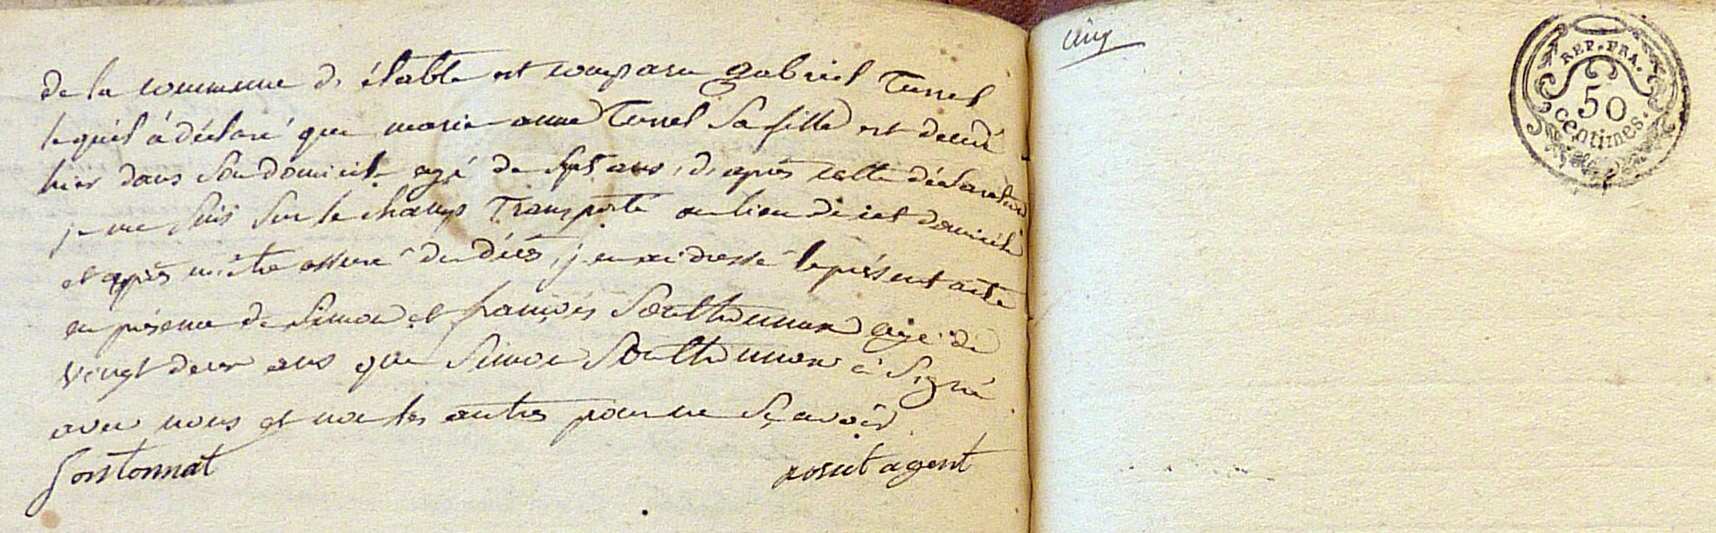 de la commune d'étable est comparu gabriel Turrel
lequel à déclaré que marie anne Turrel Sa fille est decedé
hier dans Son domicile agé de Sept ans, d'après cette déclaration
je me Suis Sur le champ Transporté au lieu de cet domicile
et après m'être assuré du décès, j'en ai dressé le présent acte
en présence de Simon et françois agé de
vingt deux ans que Simon à Signé
avec nous et non les autres pour ne Sçavoir
rosset agent
cinq
REP. FRA.
50
centimes.